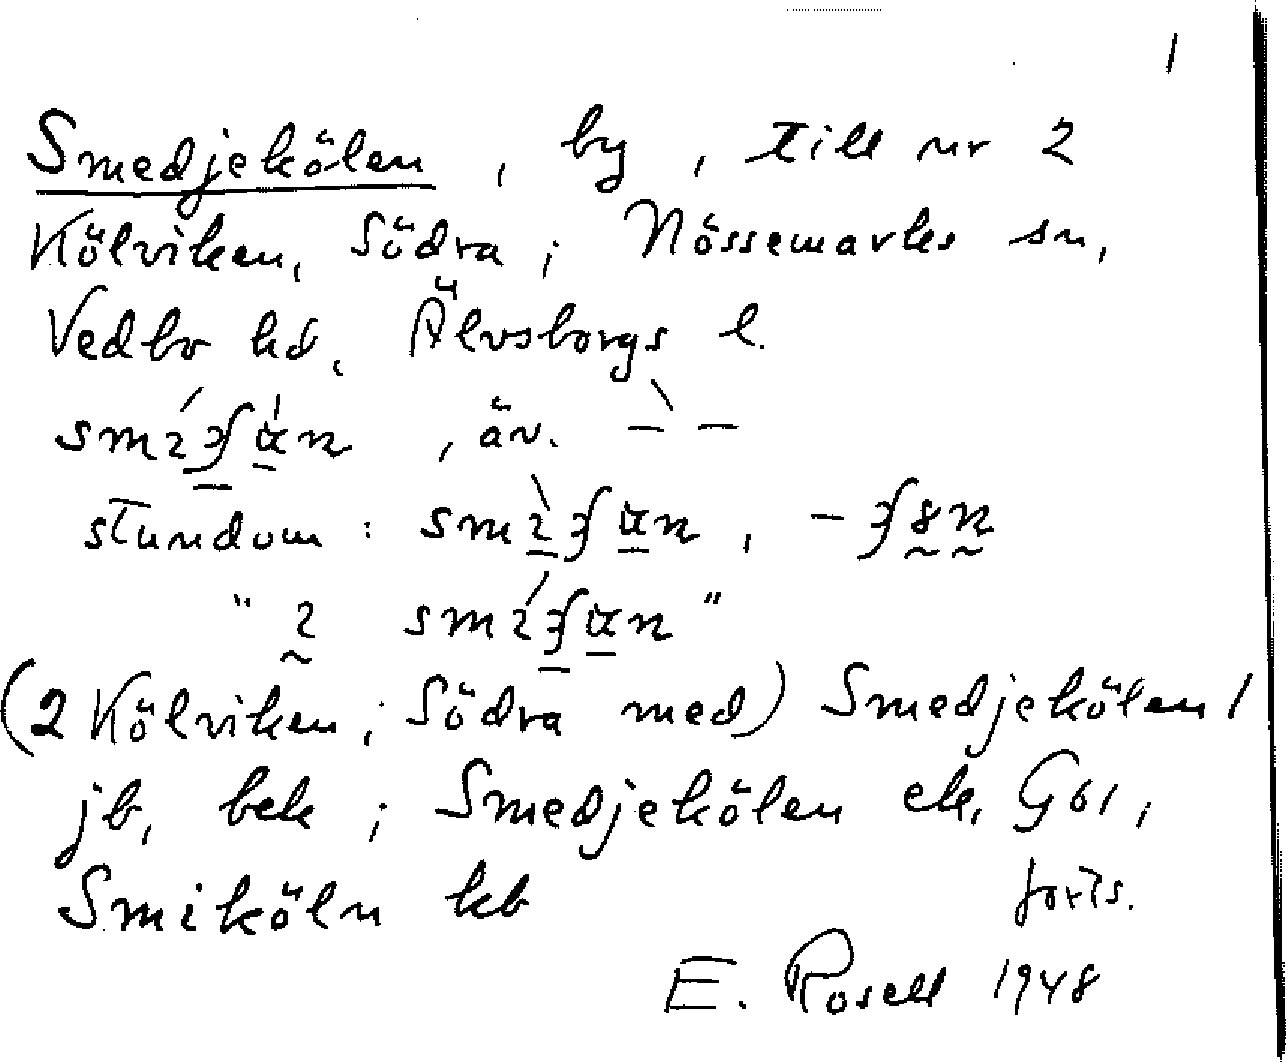 1
Smedjekölen, by, till nr 2
Kölviken, Södra; Nössemarks sn,
Vedbo hd, Älvsborgs l.
, äv. – \ –
stundom:
" 2 "
(2 Kölviken, Södra med) Smedjekölen/
jb, bek; Smedjekölen ek, G61,
Smiköln kb
forts.
E. Rosell 1948